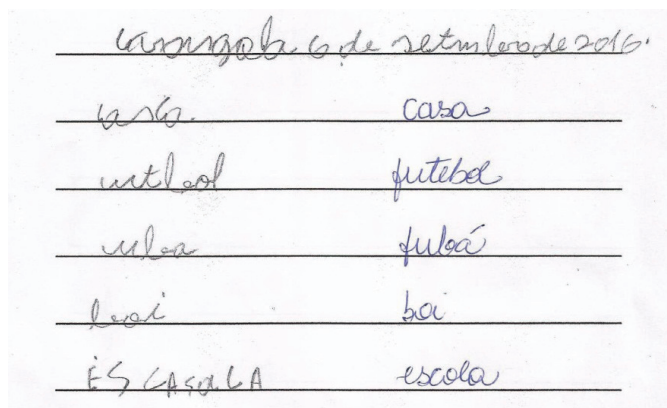 6 de setmbro de 2016.
casa casa
utbol futebol
uba fubá
boi boi
ESCASOLA escola